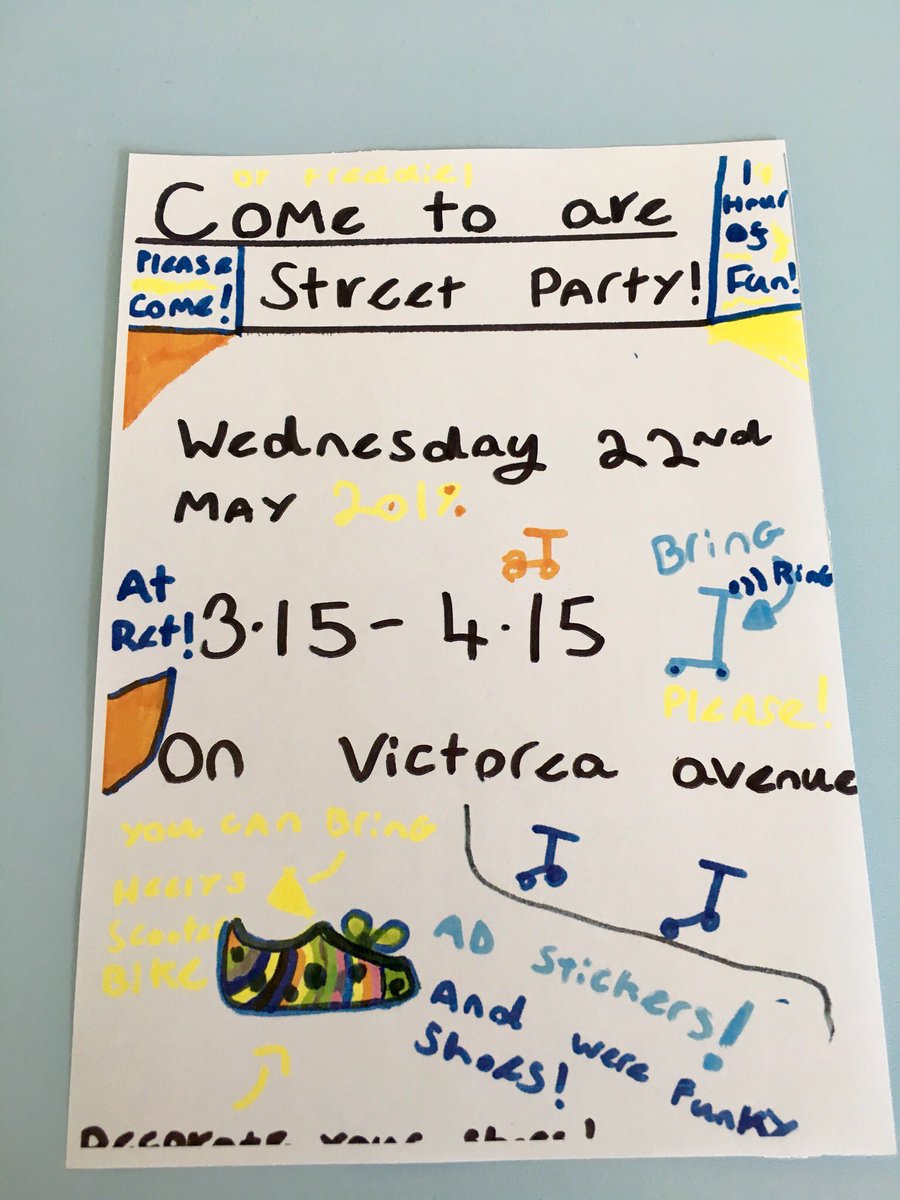 or Freddie!
Come to are
Street Party!
Please
Come!
1
Hour
of
Fun!
Wednesday 22nd
May
At
3.15 - 4.15
Bring
Ring
Please!
On Victorea avenue
You can Bring
Heelys
Scooter
Bike
AD Stickers!
And were Funky
Shoes!
Decorate your shoes!